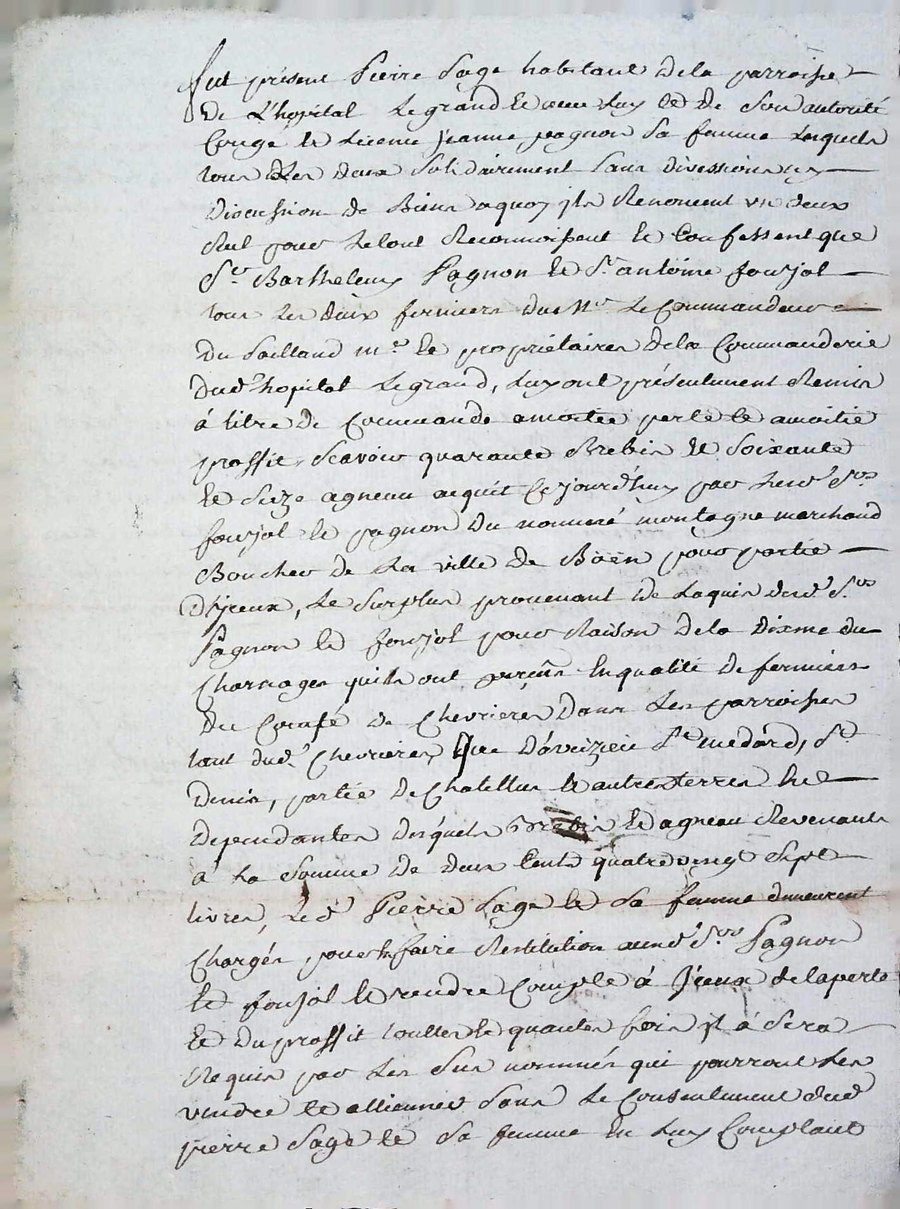 fut présent Pierre Sage habitant dela parroisse
de L'hopital Legrand le avec Luy et de son autorité
Congé et Licence Jeanne pagnon Sa femme Lesquels
tous Les deux Solidairement Sans divission ny
discussion de Biens aquoy jls Renoncent un deux
Seul pour Letout Reconnoissent et Confessent que
Sr. Barthelemy Pagnon et Sr. antoine foujol
tous Les deux fermiers du Le Commandeur
du Sailland me. et propriétaires dela Commanderie
dud. hopital Legrand, Luy ont présentement Remis
à titre de Commande amoitée perte et amoitié
proffit, Scavoir quarante Brebis et Soixante
et Seize agneau acquit Cejourd'huy par lesd. Srs
foujol et pagnon du nommé montagne marchand
Boucher de La ville de Boën pour partie
D'jceux, Le Surplus provenant de Laquis dud. Srs
Pagnon et foujol pour Raison dela dixme du
Charnages quils ont perçus En qualité de fermiers
du Comté de Chevrieres dans Les parroisses
tant dud. Chevrieres, que D'avrizieu St. medard, St.
denis, partie de Chatellus et autres terres
dependantes desquels Brebis et agneau Revenants
à La Somme de deux Cents quatre vingt Sept
livres, Led. Pierre Sage et Sa femme demeurent
Chargés, pour En faire Restitution auxd. Srs Pagnon
et foujol et rendre Compte à Jceux de la perte
et du proffit touttes et quantes fois jl à Sera
Requis par Les Sus nommés qui pourront Les
vendre et allienner Sans Le Consentement dud.
pierre Sage et Sa femme En Luy Comptant